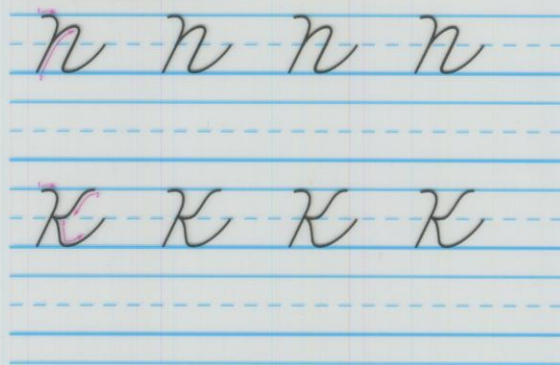 N N N N
K K K K